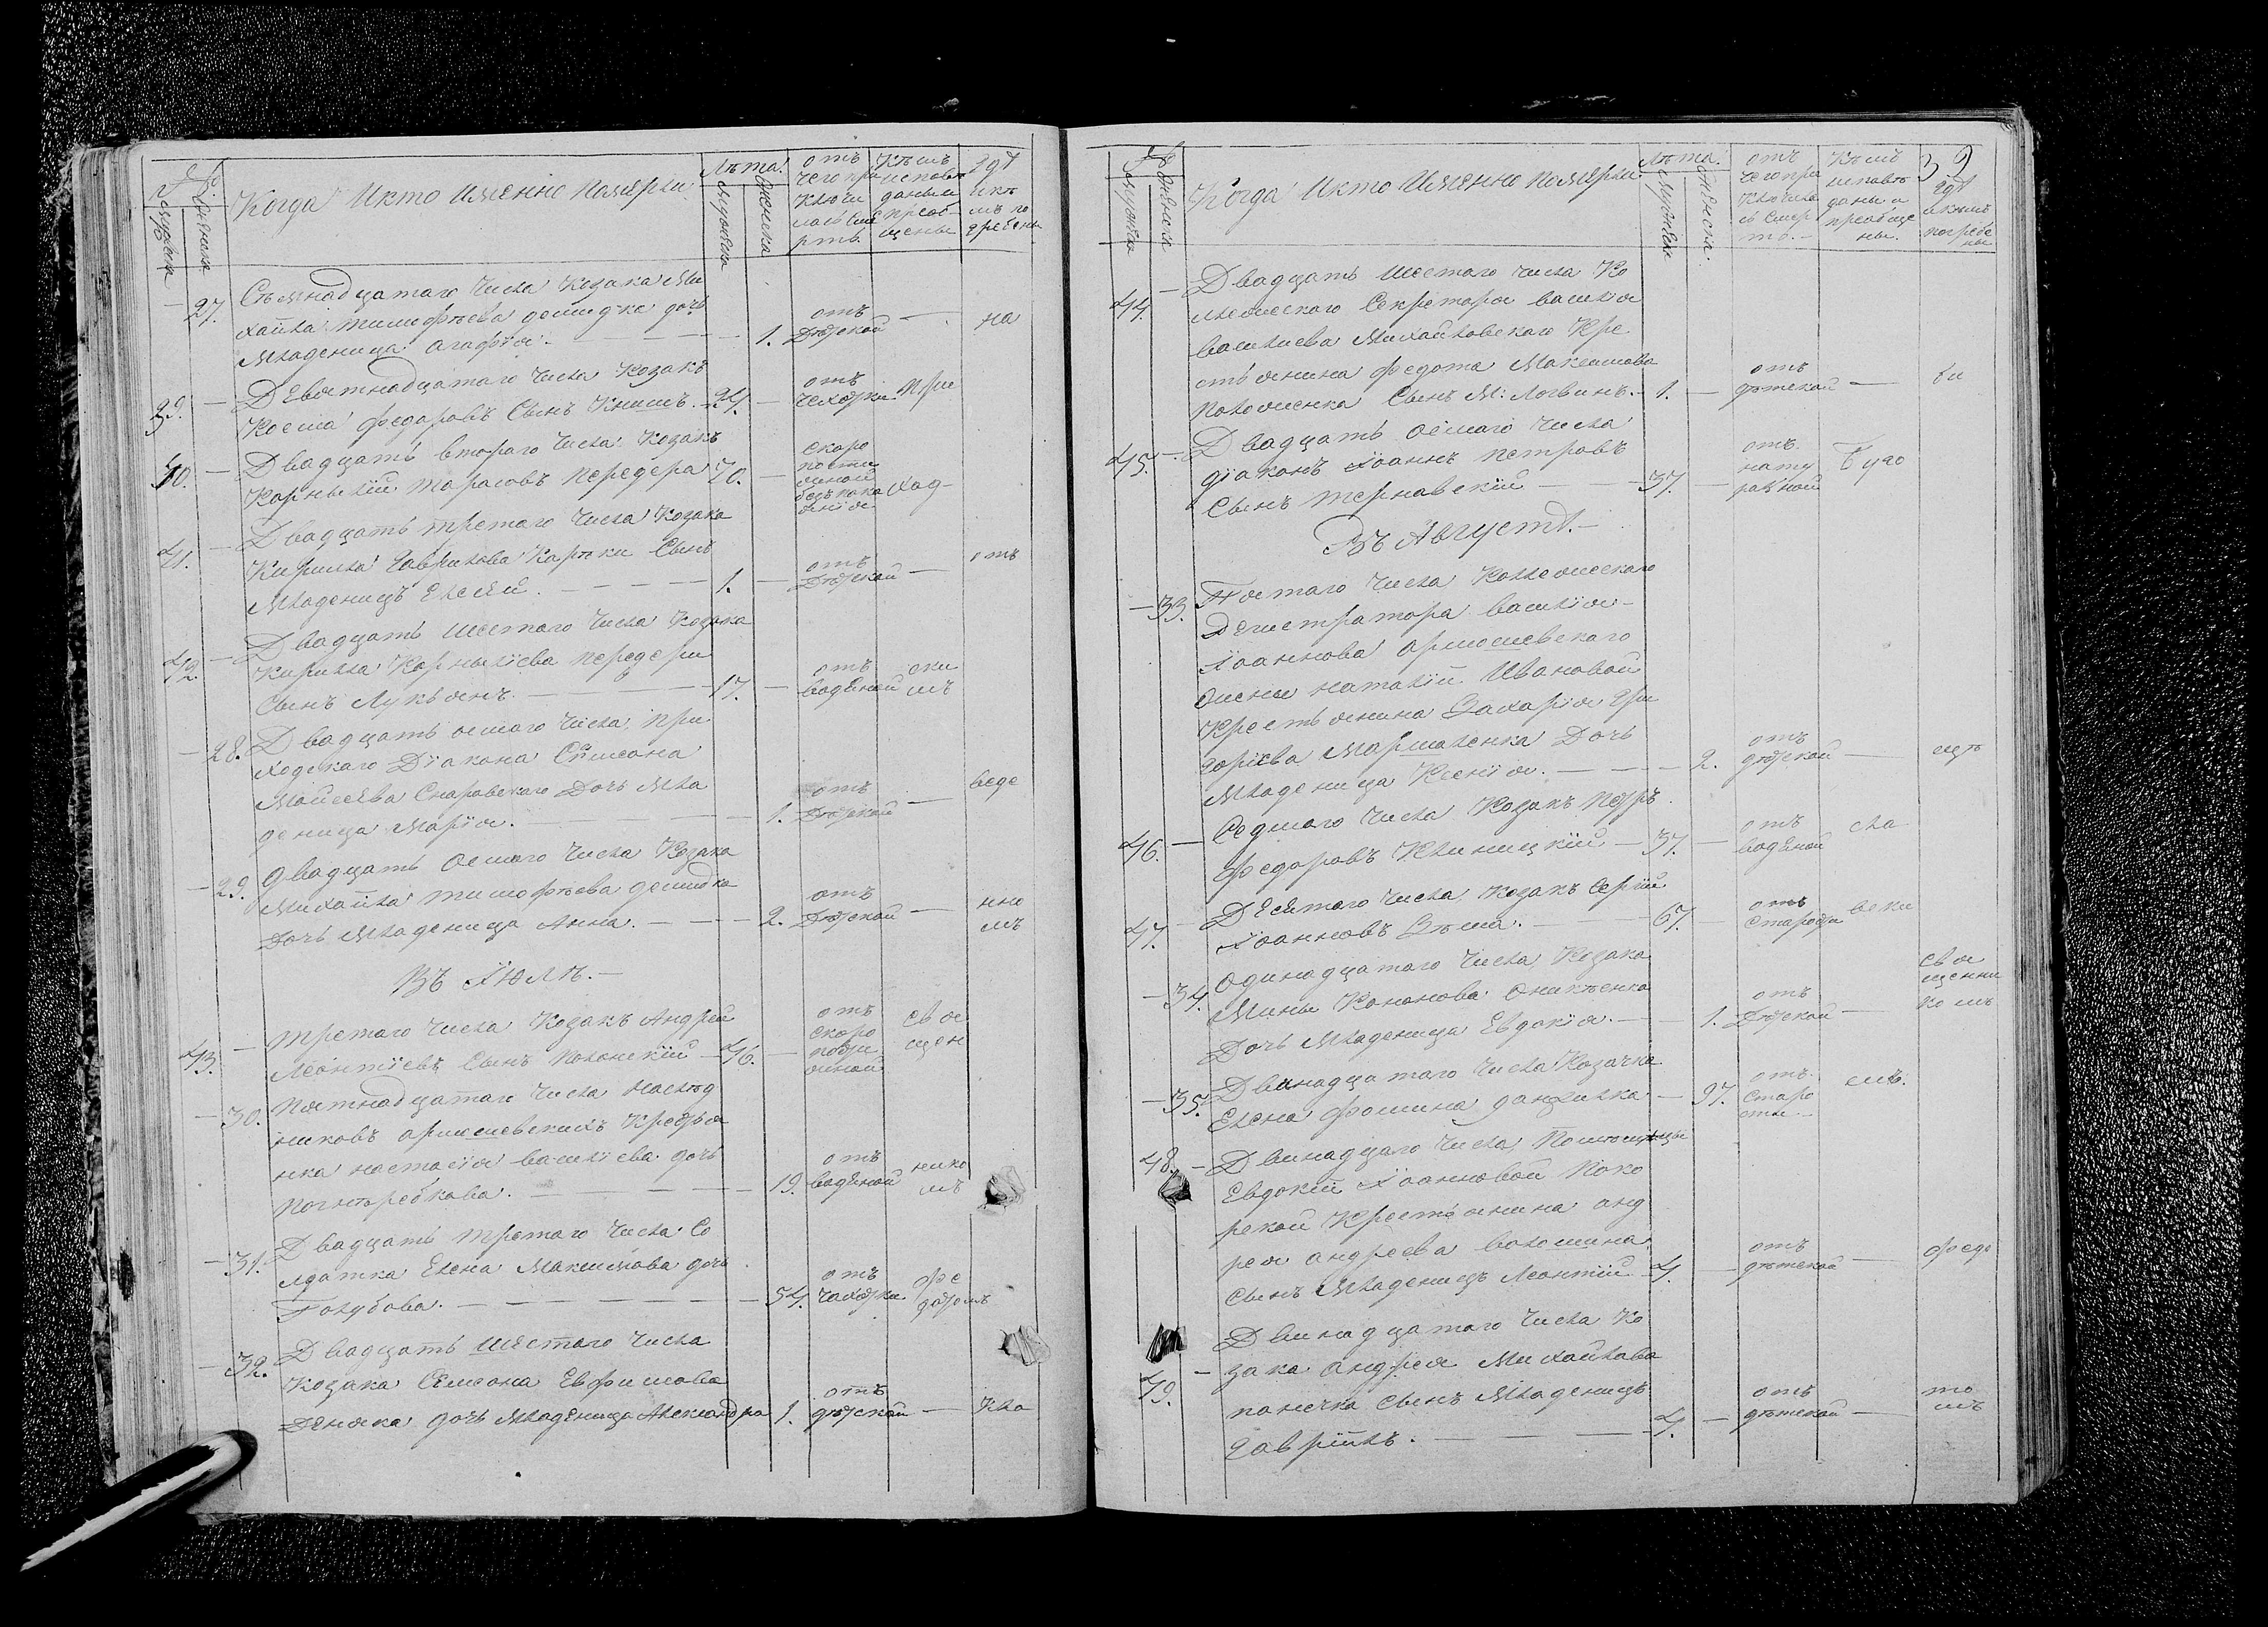 №
мужеска
женска
Когда и кто именно померли
Лѣта.
мужеска
женска
отъ чего приключилась смерть
кѣмъ исповѣданы и преобщены
гдѣ и кѣмъ погребены
27. Съмнадцатаго числа козака Ми
хаила Тимофѣева Демидка дочь
младеница Агафія. — 1. отъ дѣтской — на
39. Девятнадцатаго числа козакъ
Косма Федоровъ сынъ Книшъ. 24. — отъ чехотки при
40. Двадцать втораго числа козакъ
Корнылій Тарасовъ Передера 70. — скоро
постижной
безъ покаянія ход-
41. Двадцать третаго числа козака
Кирилла Гаврилова Карпеки сынъ
младенецъ Елесѣй. — 1. — отъ дѣтской — отъ
42. Двадцать шестаго числа козака
Кирилла Корнылїева Передери
сынъ Лукьянъ. — 17. — отъ водяной ски
мъ
28. Двадцать осмаго числа при
ходскаго Дїакона Сѵмеона
Мойсеева Снаровскаго дочь мла
деница Марїя. — 1. отъ дѣтской — веде
29. Двадцать осмаго числа козака
Михаила Тимофѣева Демидка
дочь младеница Анна. — 2. отъ дѣтской — нно
мъ
Въ Їюлѣ. —
43. Третаго числа козакъ Андрей
Леонтіевъ сынъ Полонскїй — 46. — отъ
скоро
пости
жной свя
щен
30. Пятнадцатаго числа наслѣд
никовъ Армашевскихъ крестья
нка Настасія Василїева дочь
Погорѣбкова. — 19. отъ водяной нико
мъ
31. Двадцать третаго числа со
лдатка Елена Максимова дочь
Голубова. — 54. отъ чахотки фе
доромъ
32. Двадцать шестаго числа
козака Семеона Евфимова
Деняка дочь младеница Александра 1. отъ дѣтской — кла
39
№
мужеска
женска
Когда и кто именно померли.
Лѣта.
мужеска
женска.
отъ чего приключилась смерть. —
кѣмъ исповѣданы и преобщены.
гдѣ и кѣмъ погребены
44. Двадцать шестаго числа Ко
лежескаго Секретаря Василїя
Василїева Михайловскаго кре
стьянина Федота Максимова
Поломенка сынъ м: Логвинъ. — 1. — отъ дѣтской — би
45. Двадцать осмаго числа
діаконъ Іоаннъ Петровъ
сынъ Терновскїй — 37. — отъ
нату
ралной Буго
Въ Августѣ. —
33. Пятаго числа Коллежскаго
Регистратора Василїя
Їоаннова Армашевскаго
жены Наталїи Ивановой
крестьянина Захарїя Гри
горїева Мармаленка дочь
младеница Ксенїя. — 2. отъ дѣтской — щѣ
46. Седмаго числа козакъ Петръ
Федоровъ Клиницкїй — 37. — отъ водяной сла
47. Десятаго числа козакъ Сергїй
Їоанновъ Зѣма. — 67. — отъ старости вски
34. Одинадцатаго числа козака
Мины Кононова Оникѣенка
дочь младеница Евдокія. — 1. отъ дѣтской — свя
щенни
комъ
35. Двинадцатаго числа козачка
Елена Фомина Данзилка — 97. отъ
старо
сти. — мъ.
48. Двинадцаго числа помѣщицы
Евдокїи Їоанновой Поко
рской крестьянина Анд
рея Андреева Волошина
сынъ младенецъ Леонтїй 4. — отъ дѣтской — федо
49. Двинадцатаго числа ко
зака Андрея Михайлова
Панечка сынъ младенецъ
Гаврїилъ. — 4. — отъ дѣтской — то
мъ